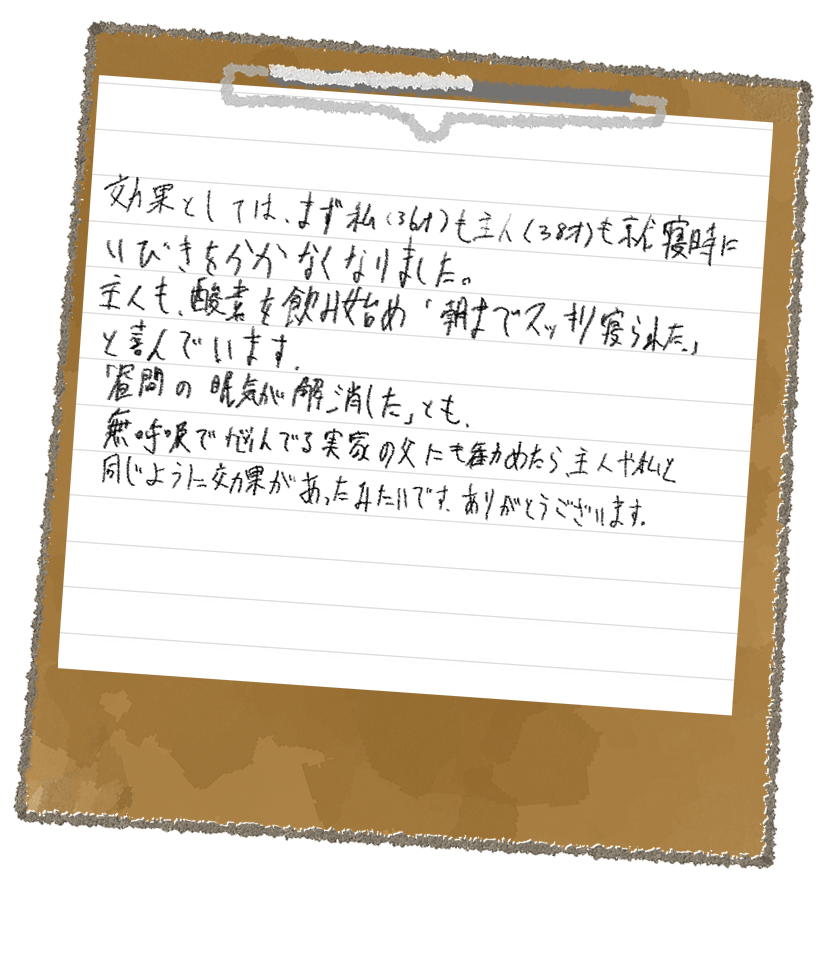 効果としては、まず私(36才)も主人(38才)も就寝時に
いびきをかかなくなりました。
主人も、酸素を飲み始め「朝までスッキリ寝られた。」
と喜んでいます。
「昼間の眠気が解消した」とも、
無呼吸で悩んでる実家の父にも勧めたら、主人や私と
同じように効果があったみたいです。ありがとうございます。